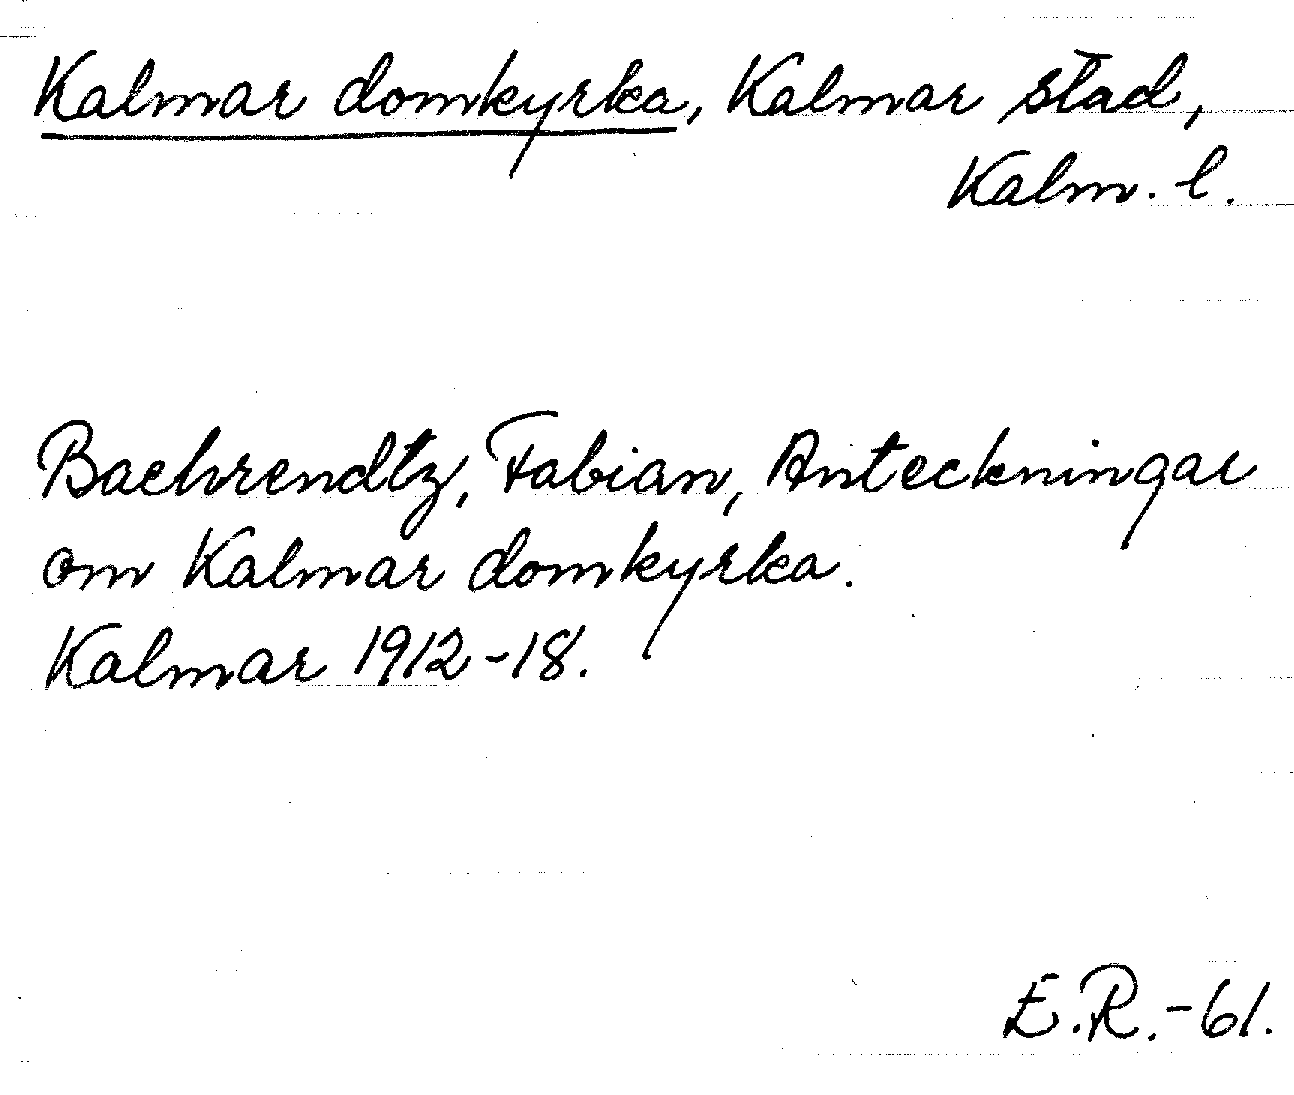 Kalmar domkyrka, Kalmar stad,
Kalm. l.
Baehrendtz, Fabian, Anteckningar
om Kalmar domkyrka.
Kalmar 1912-18.
E.R.-61.